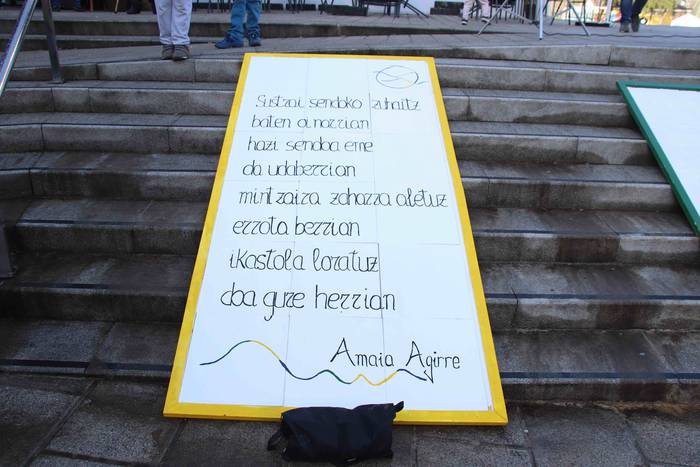 Sustrai sendoko zuhaitz
baten oinarrian
hazi sendoa erne
da udaberrian
mintzaira zaharra aletuz
errota berrian
ikastola loratuz
doa gure herrian
Amaia Agirre